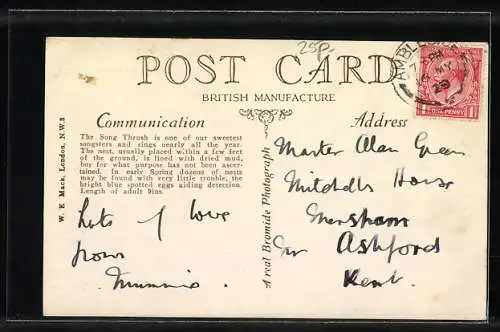 25p
POST CARD
BRITISH MANUFACTURE
Communication
The Song Thrush is one of our sweetest
songsters and sings nearly all the year.
The nest, usually placed within a few feet
of the ground, is lined with dried mud,
but for what purpose has not been ascer-
tained. In early Spring dozens of nests
may be found with very little trouble, the
bright blue spotted eggs aiding detection.
Length of adult 9ins.
Lots of love
from
Mummie.
W. E. Mack, London, N.W.3
A real Bromide Photograph
Address
Master Alan Green
Mitchells House
Mersham
Nr Ashford
Kent.
AMBLESIDE
MY
29
ONE PENNY